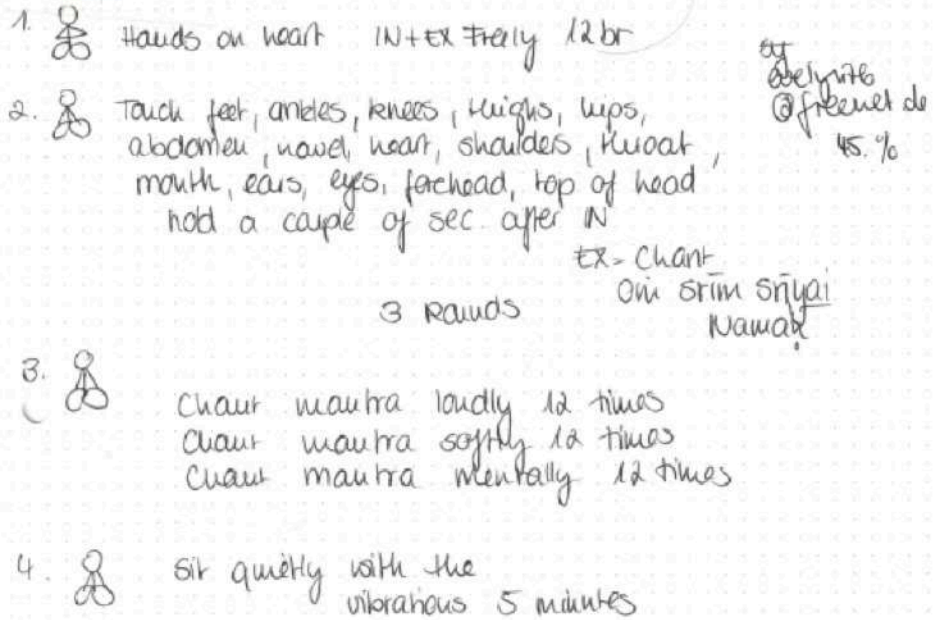 1. Hands on heart IN+EX Freily 12 br
@freenet de
45. %
2. Touch feet, ankles, knees, thighs, hips,
abdomen, navel, heart, shoulders, throat,
mouth, ears, eyes, forehead, top of head
hold a couple of sec. after IN
EX - Chant
Om srīm srīyai
Namaḥ
3 Rounds
3.
Chant mantra loudly 12 times
Chant mantra softly 12 times
Chant mantra mentally 12 times
4. Sit quietly with the
vibrations 5 minutes